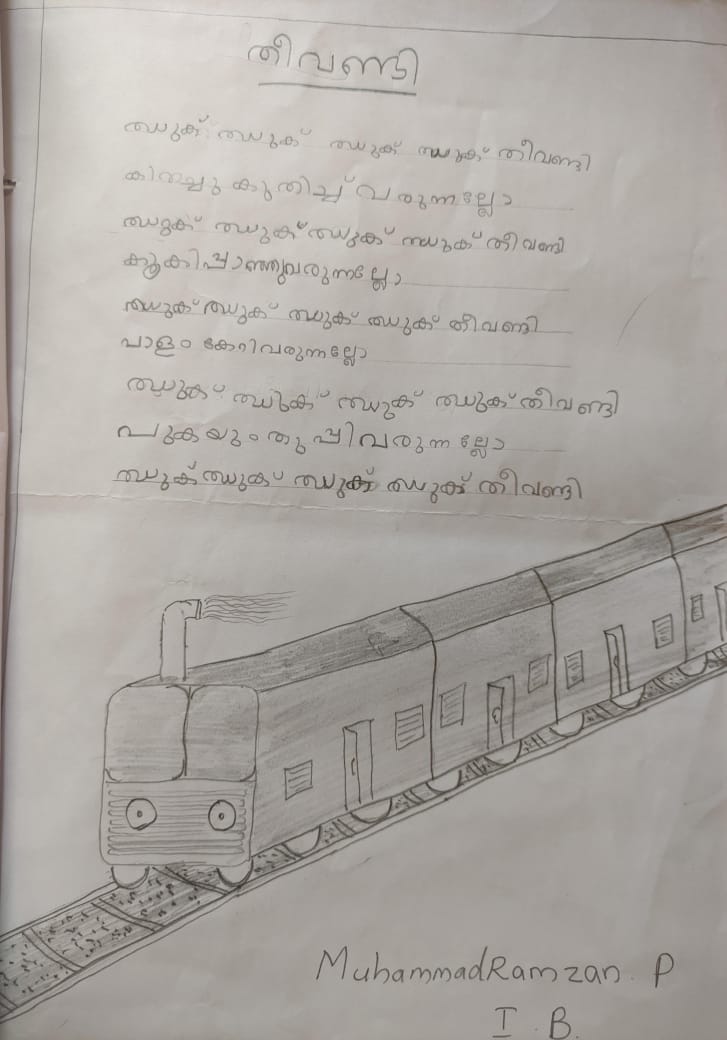 തീവണ്ടി
ഝുക് ഝുക് ഝുക് ഝുക് തീവണ്ടി
കിതച്ചു കുതിച്ച് വരുന്നല്ലോ
ഝുക് ഝുക് ഝുക് ഝുക് തീവണ്ടി
കൂകിപ്പാഞ്ഞുവരുന്നല്ലോ
ഝുക് ഝുക് ഝുക് ഝുക് തീവണ്ടി
പാളം കേറിവരുന്നല്ലോ
ഝുക് ഝുക് ഝുക് ഝുക് തീവണ്ടി
പുകയും തുപ്പിവരുന്നല്ലോ
ഝുക് ഝുക് ഝുക് ഝുക് തീവണ്ടി
Muhammad Ramzan. P
I. B.